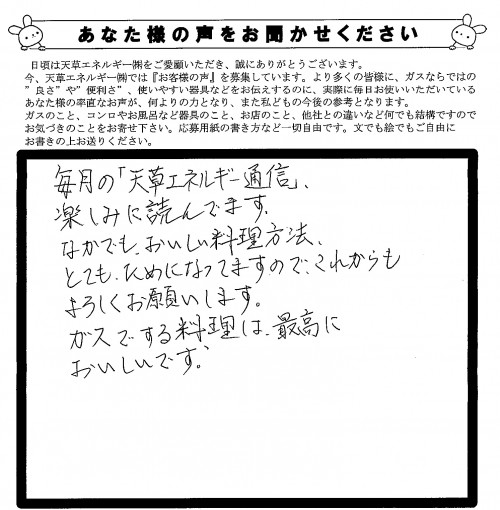 あなた様の声をお聞かせください
日頃は天草エネルギー㈱をご愛顧いただき、誠にありがとうございます。
今、天草エネルギー㈱では『お客様の声』を募集しています。より多くの皆様に、ガスならではの
”良さ”や”便利さ”、使いやすい器具などをお伝えするのに、実際に毎日お使いいただいている
あなた様の率直なお声が、何よりの力となり、また私どもの今後の参考となります。
ガスのこと、コンロやお風呂など器具のこと、お店のこと、他社との違いなど何でも結構ですので
お気づきのことをお寄せ下さい。応募用紙の書き方など一切自由です。文でも絵でもご自由に
お書きの上お送りください。
毎月の「天草エネルギー通信」、
楽しみに読んでます。
なかでも、おいしい料理方法、
とても、ためになってますので、これからも
よろしくお願いします。
ガスでする料理は、最高に
おいしいです。